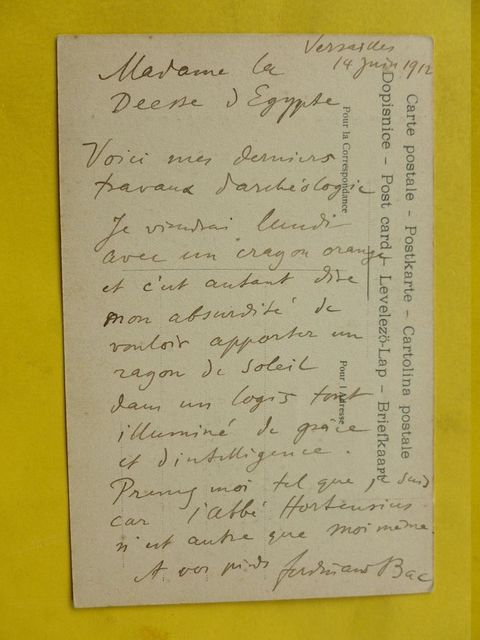 Versailles
14 Juin 1912
Madame la
Deesse d'Egypte
Voici mes derniers
travaux d'archéologie
Je viendrai lundi
avec un crayon orange
et c'est autant dire
mon absurdité de
vouloir apporter un
rayon de soleil
dans un logis tout
illuminé de grâce
et d'intelligence.
Prenez moi tel que je suis
car l'abbé Hortensius
n'est autre que moi même.
A vos pieds Ferdinand Bac
Carte postale - Postkarte - Cartolina postale
Dopisnice - Post card - Levelezö-Lap - Briefkaart
Pour la Correspondance
Pour l'Adresse